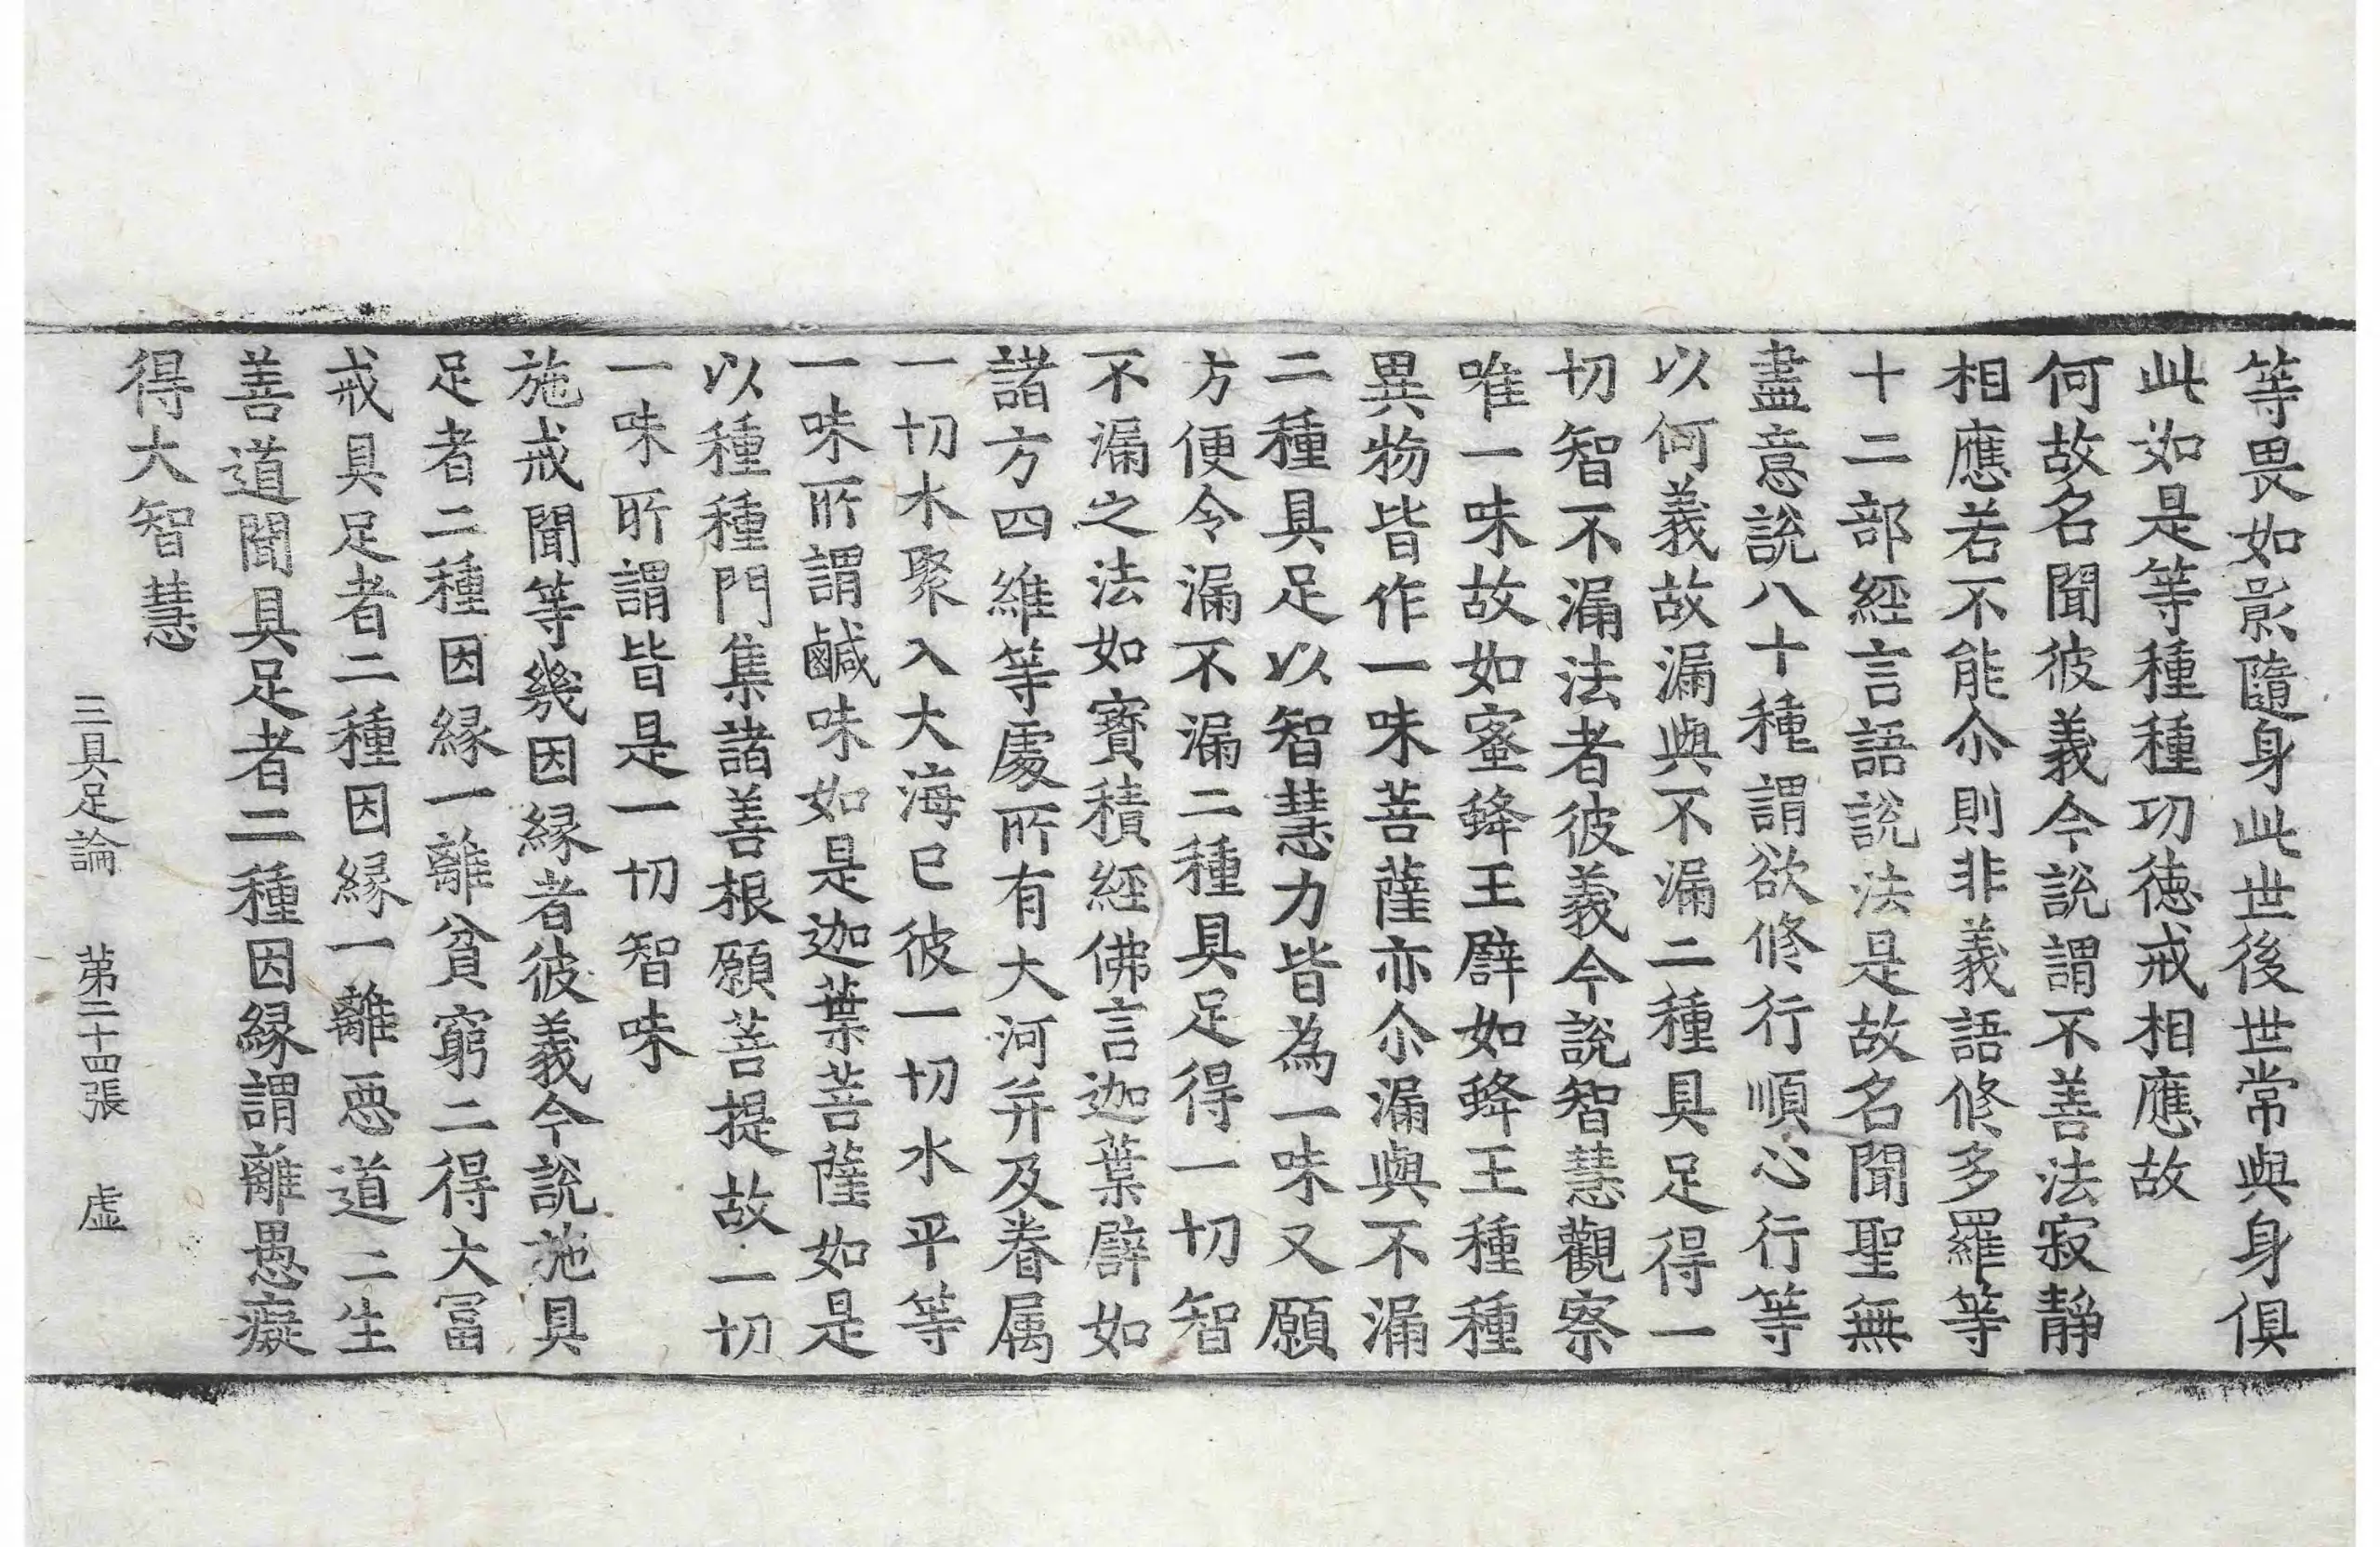 等畏如影隨身此世後世常與身俱
此如是等種種功德戒相應故
何故名聞彼義今說謂不善法寂靜
相應若不能尒則非義語修多羅等
十二部經言語說法是故名聞聖無
盡意說八十種謂欲修行順心行等
以何義故漏與不漏二種具足得一
切智不漏法者彼義今說智慧觀察
唯一味故如蜜蜂王譬如蜂王種種
異物皆作一味菩薩亦尒漏與不漏
二種具足以智慧力皆為一味又願
方便令漏不漏二種具足得一切智
不漏之法如寶積經佛言迦葉譬如
諸方四維等處所有大河并及眷属
一切水聚入大海已彼一切水平等
一味所謂鹹味如是迦葉菩薩如是
以種種門集諸善根願菩提故一切
一味所謂皆是一切智味
施戒聞等幾因緣者彼義今說施具
足者二種因緣一離貧窮二得大冨
戒具足者二種因緣一離惡道二生
善道聞具足者二種因緣謂離愚癡
得大智慧
三具足論 第二十四張 虛